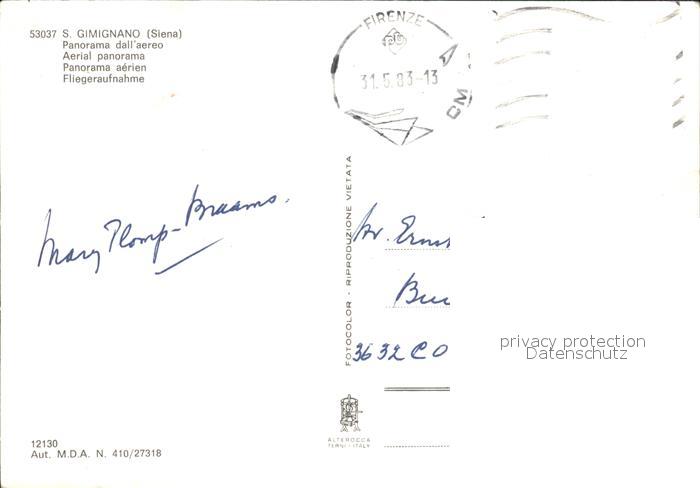 53037 S. GIMIGNANO (Siena)
Panorama dall'aereo
Aerial panorama
Panorama aérien
Fliegeraufnahme
FIRENZE
31.5.83-13
A
CM
Mary Plomp-Braams.
FOTOCOLOR - RIPRODUZIONE VIETATA
Av. Erns
Bu
3632 CO
privacy protection
Datenschutz
ALTEROCCA
TERNI-ITALY
12130
Aut. M.D.A. N. 410/27318